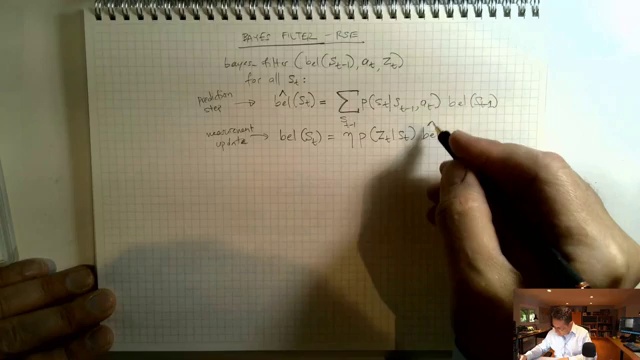 BAYES FILTER - RSE
bayes filter (bel(S_{t-1}), a_t, Z_t)
for all S_t:
prediction step → bel̂(S_t) = ∑_{S_{t-1}} p(S_t | S_{t-1}, a_t) bel(S_{t-1})
measurement update → bel(S_t) = η p(Z_t | S_t) bê